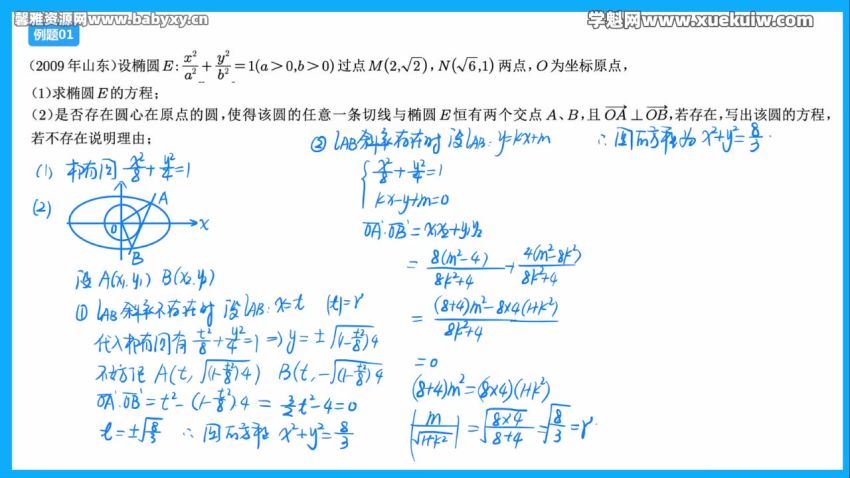 馨雅资源网www.babyxy.cn
学魁网www.xuekuiw.com
例题01
(2009年山东)设椭圆E: x²/a² + y²/b² = 1(a>0,b>0)过点M(2,√2), N(√6,1)两点, O为坐标原点,
(1)求椭圆E的方程;
(2)是否存在圆心在原点的圆,使得该圆的任意一条切线与椭圆E恒有两个交点A、B,且OA⊥OB,若存在,写出该圆的方程,
若不存在说明理由;
(1) 椭圆 x²/8 + y²/4 = 1
(2)
A
O
B
x
设 A(x₁,y₁) B(x₂,y₂)
① l_AB斜率不存在时 设l_AB: x=t |t|=r
代入椭圆有 t²/8 + y²/4 = 1 ⇒ y = ±√((1-t²/8)4)
不妨记 A(t, √((1-t²/8)4)) B(t, -√((1-t²/8)4))
OA·OB = t² - (1-t²/8)4 = 3/2 t² - 4 = 0
t = ±√(8/3) ∴ 圆的方程 x²+y² = 8/3
② l_AB斜率存在时 设l_AB: y=kx+m
{ x²/8 + y²/4 = 1
kx-y+m=0
OA·OB = x₁x₂+y₁y₂
= 8(m²-4)/(8k²+4) + 4(m²-8k²)/(8k²+4)
= ((8+4)m² - 8×4(1+k²))/(8k²+4)
= 0
(8+4)m² = (8×4)(1+k²)
|m/√(1+k²)| = √(8×4/(8+4)) = √(8/3) = r
∴ 圆的方程为 x²+y² = 8/3.